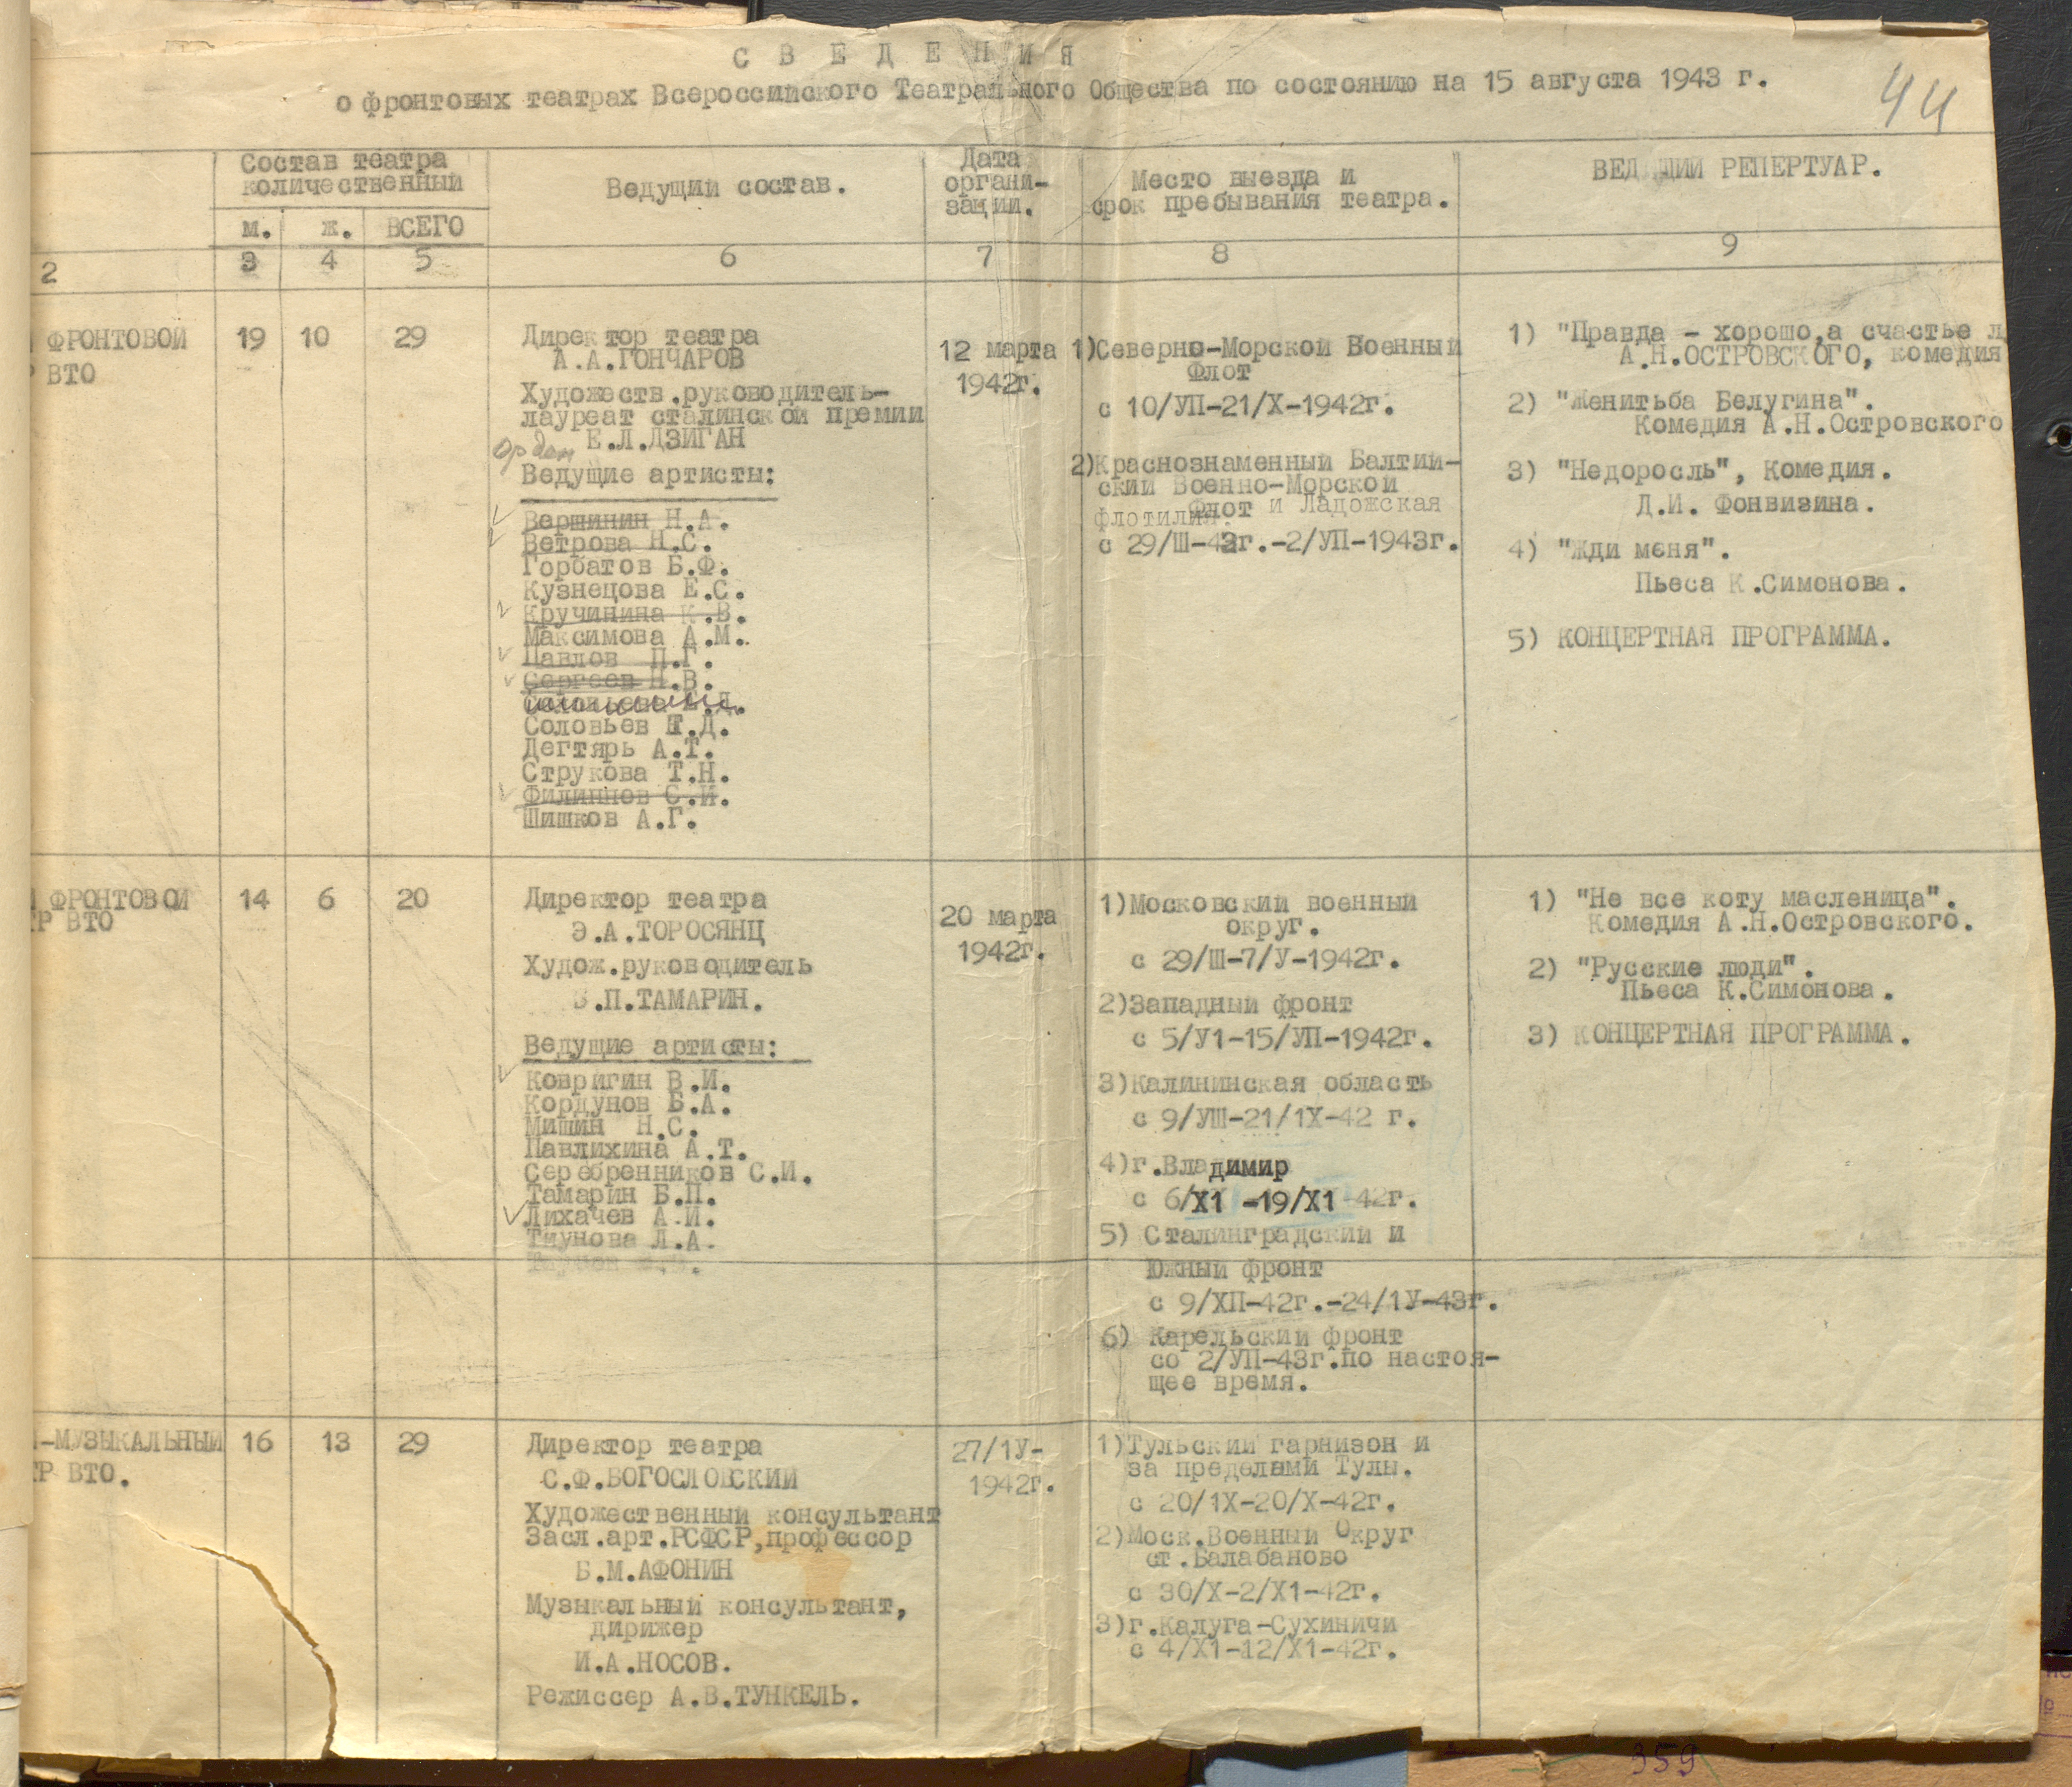 С В Е Д Е Н И Я
о фронтовых театрах Всероссийского Театрального Общества по состоянию на 15 августа 1943 г.
44
Состав театра
количественный
м. ж. ВСЕГО
Ведущий состав.
Дата
органи-
зации.
Место выезда и
срок пребывания театра.
ВЕДУЩИЙ РЕПЕРТУАР.
2 3 4 5 6 7 8 9
ФРОНТОВОЙ
ВТО
19 10 29
Директор театра
А.А.ГОНЧАРОВ
Художеств.руководитель-
лауреат сталинской премии
Е.Л.ДЗИГАН
Орден
Ведущие артисты:
Вершинин Н.А.
Ветрова Н.С.
Горбатов Б.Ф.
Кузнецова Е.С.
Кручинина К.В.
Максимова А.М.
Павлов П.Г.
Сергеев Н.В.
Соловьев Г.Д.
Дегтярь А.Т.
Струкова Т.Н.
Филиппов С.И.
Шишков А.Г.
12 марта
1942г.
1)Северно-Морской Военный
Флот
с 10/УП-21/Х-1942г.
2)Краснознаменный Балтий-
ский Военно-Морской
Флот и Ладожская
флотилия.
с 29/Ш-43г.-2/УП-1943г.
1) "Правда - хорошо,а счастье л
А.Н.ОСТРОВСКОГО, комедия
2) "Женитьба Белугина".
Комедия А.Н.Островского
3) "Недоросль", Комедия.
Д.И. Фонвизина.
4) "Жди меня".
Пьеса К.Симонова.
5) КОНЦЕРТНАЯ ПРОГРАММА.
ФРОНТОВОЙ
ТР ВТО
14 6 20
Директор театра
Э.А.ТОРОСЯНЦ
Худож.руководитель
Б.П.ТАМАРИН.
Ведущие артисты:
Ковригин В.И.
Кордунов Б.А.
Мишин Н.С.
Павлихина А.Т.
Серебренников С.И.
Тамарин Б.П.
Лихачев А.И.
Тиунова Л.А.
20 марта
1942г.
1)Московский военный
округ.
с 29/Ш-7/У-1942г.
2)Западный фронт
с 5/У1-15/УП-1942г.
3)Калининская область
с 9/УШ-21/1Х-42 г.
4)г.Владимир
с 6/Х1 -19/Х1 42г.
5) Сталинградский и
Южный фронт
с 9/ХП-42г.-24/1У-43г.
6) Карельский фронт
со 2/УП-43г.по настоя-
щее время.
1) "Не все коту масленица".
Комедия А.Н.Островского.
2) "Русские люди".
Пьеса К.Симонова.
3) КОНЦЕРТНАЯ ПРОГРАММА.
-МУЗЫКАЛЬНЫЙ
ТР ВТО.
16 13 29
Директор театра
С.Ф.БОГОСЛОВСКИЙ
Художественный консультант
Засл.арт.РСФСР,профессор
Б.М.АФОНИН
Музыкальный консультант,
дирижер
И.А.НОСОВ.
Режиссер А.В.ТУНКЕЛЬ.
27/1У-
1942г.
1)Тульский гарнизон и
за пределами Тулы.
с 20/1Х-20/Х-42г.
2)Моск.Военный Округ
ст.Балабаново
с 30/Х-2/Х1-42г.
3)г.Калуга-Сухиничи
с 4/Х1-12/Х1-42г.
359